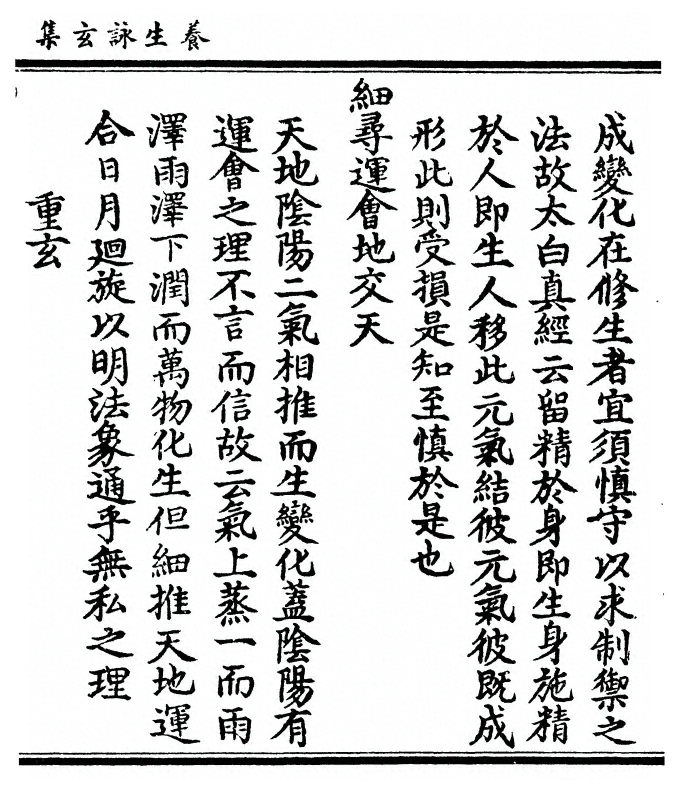 養生詠玄集
成變化在修生者宜須慎守以求制禦之
法故太白真經云留精於身即生身施精
於人即生人移此元氣結彼元氣彼既成
形此則受損是知至慎於是也
細尋運會地交天
天地陰陽二氣相推而生變化蓋陰陽有
運會之理不言而信故云氣上蒸一而雨
澤雨澤下潤而萬物化生但細推天地運
合日月廻旋以明法象通乎無私之理
重玄